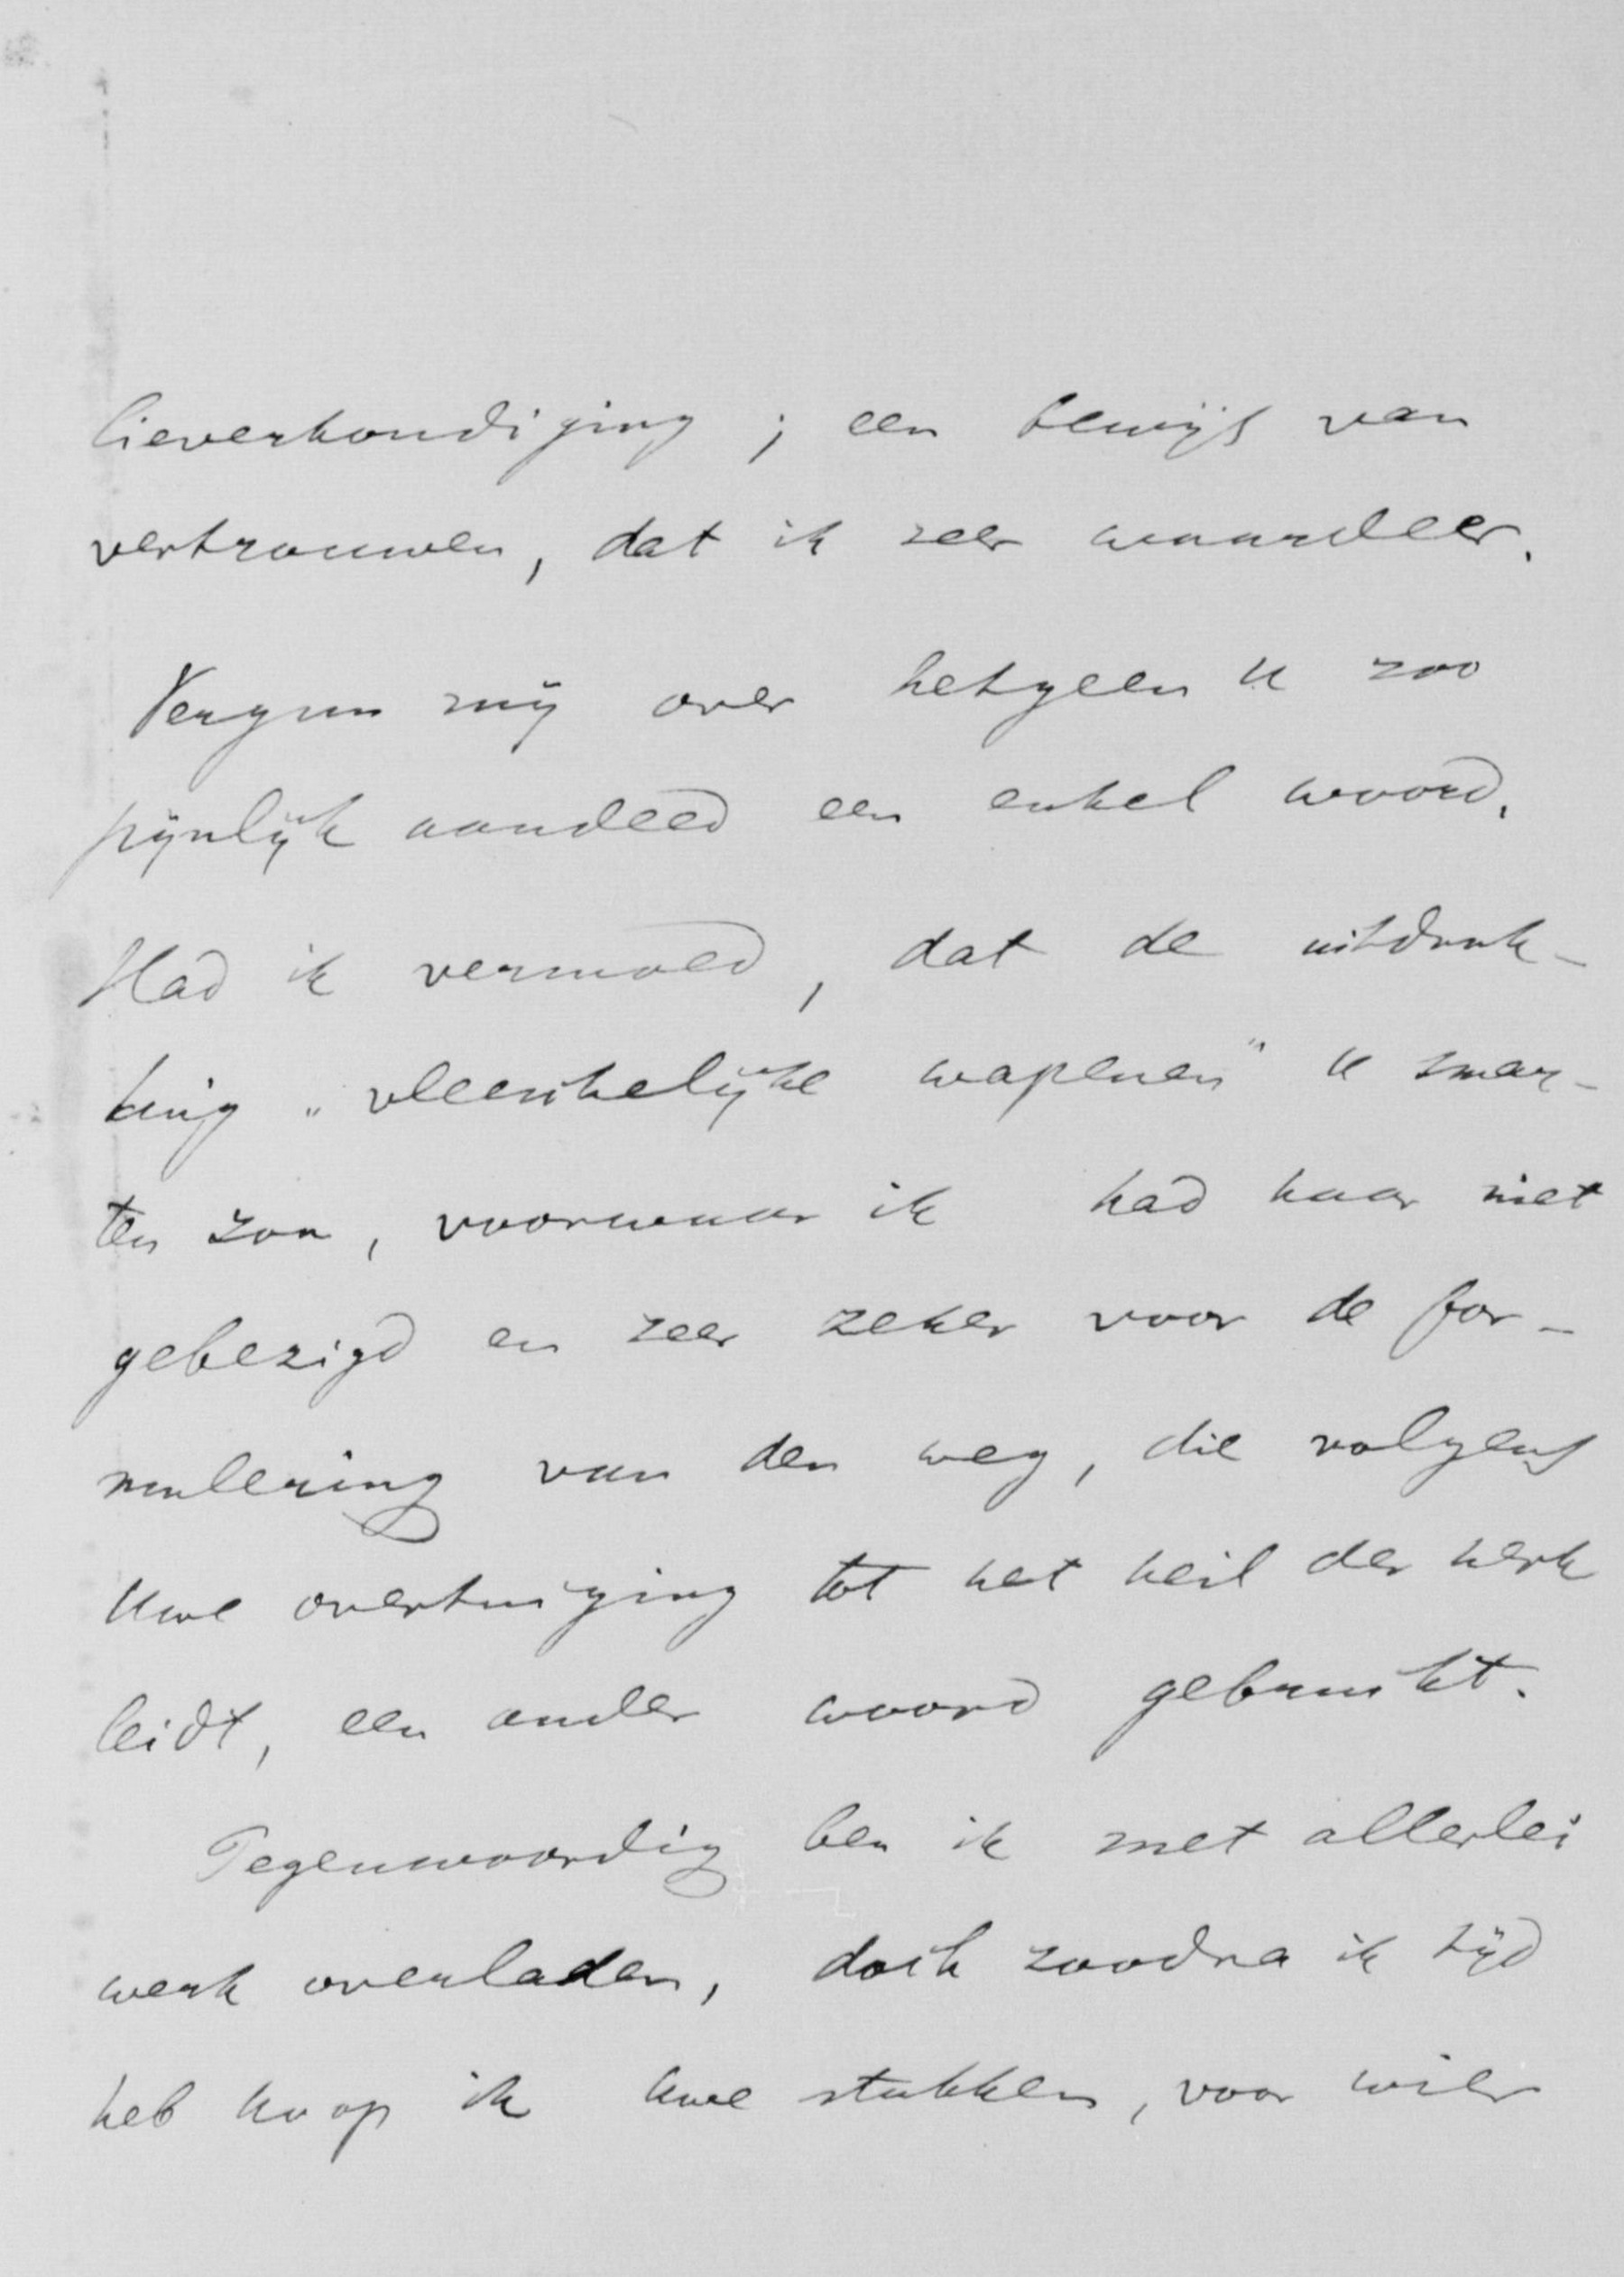 lieverkondiging; een bewijs van
vertrouwen, dat ik zeer waardeer.
Vergun mij over hetgeen U zoo
pijnlijk aandeed een enkel woord.
Had ik vermoed, dat de uitdruk-
king „vleeschelijke wapenen" U smar-
ten zou, voorwaar ik had haar niet
gebezigd en zeer zeker voor de for-
mulering van den weg, die volgens
Uwe overtuiging tot het heil der kerk
leidt, een ander woord gebruikt.
Tegenwoordig ben ik met allerlei
werk overladen, doch zoodra ik tijd
heb hoop ik Uwe stukken, voor wier